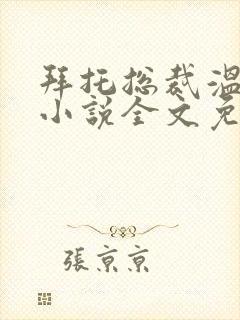 拜托总裁温
小说全文免
張京京